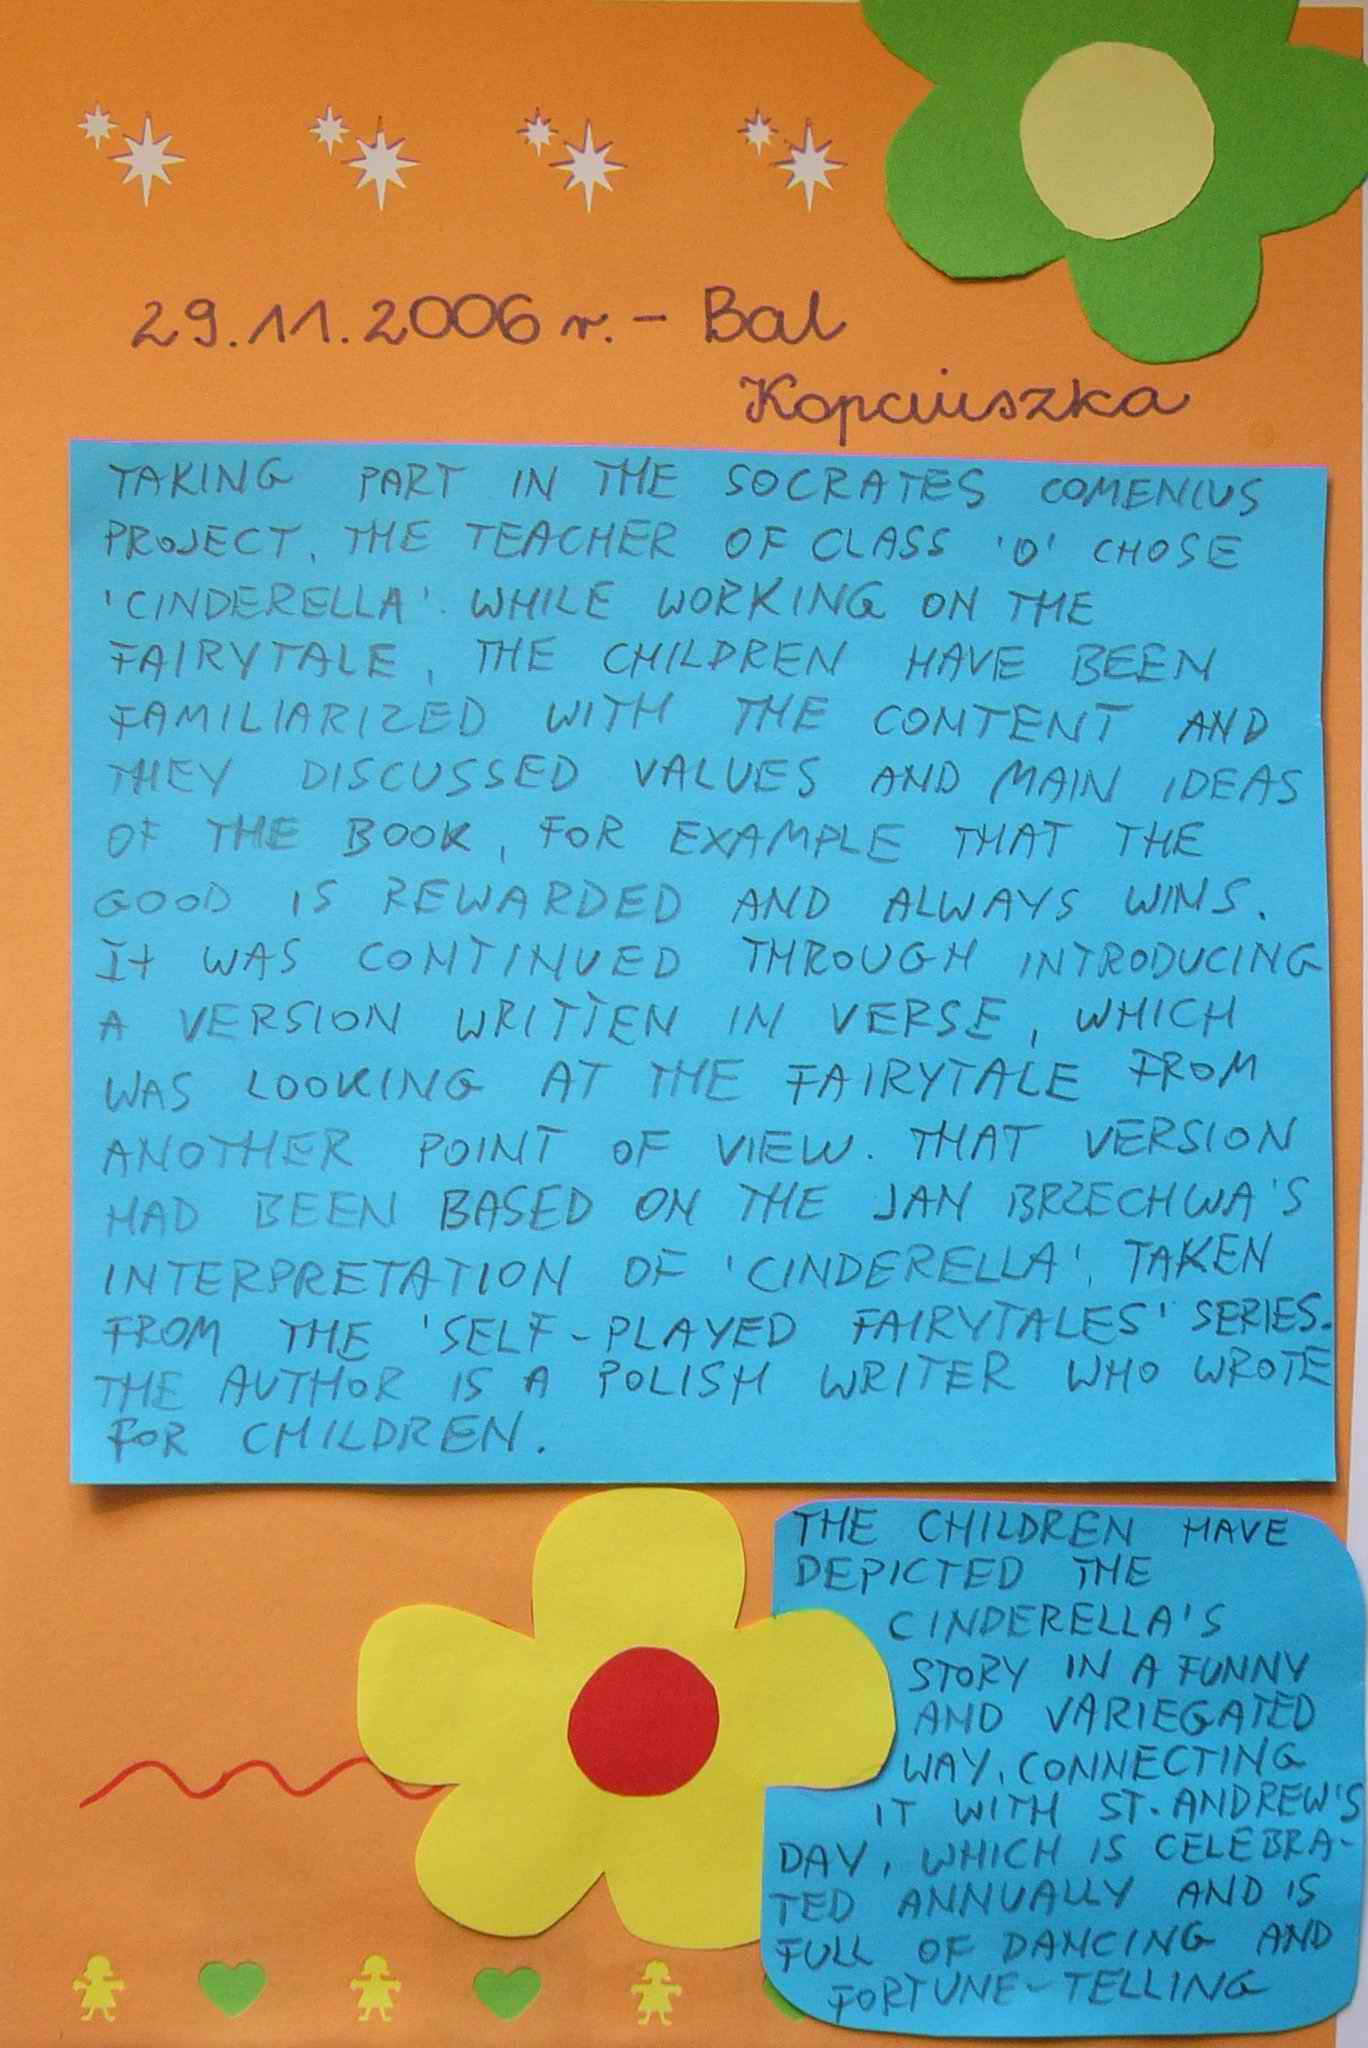 29.11.2006 r. - Bal
Kopciuszka
TAKING PART IN THE SOCRATES COMENIUS
PROJECT, THE TEACHER OF CLASS '0' CHOSE
'CINDERELLA'. WHILE WORKING ON THE
FAIRYTALE, THE CHILDREN HAVE BEEN
FAMILIARIZED WITH THE CONTENT AND
THEY DISCUSSED VALUES AND MAIN IDEAS
OF THE BOOK, FOR EXAMPLE THAT THE
GOOD IS REWARDED AND ALWAYS WINS.
It WAS CONTINUED THROUGH INTRODUCING
A VERSION WRITTEN IN VERSE, WHICH
WAS LOOKING AT THE FAIRYTALE FROM
ANOTHER POINT OF VIEW. THAT VERSION
HAD BEEN BASED ON THE JAN BRZECHWA'S
INTERPRETATION OF 'CINDERELLA', TAKEN
FROM THE 'SELF-PLAYED FAIRYTALES' SERIES.
THE AUTHOR IS A POLISH WRITER WHO WROTE
FOR CHILDREN.
THE CHILDREN HAVE
DEPICTED THE
CINDERELLA'S
STORY IN A FUNNY
AND VARIEGATED
WAY, CONNECTING
IT WITH ST. ANDREW'S
DAY, WHICH IS CELEBRA-
TED ANNUALLY AND IS
FULL OF DANCING AND
FORTUNE-TELLING